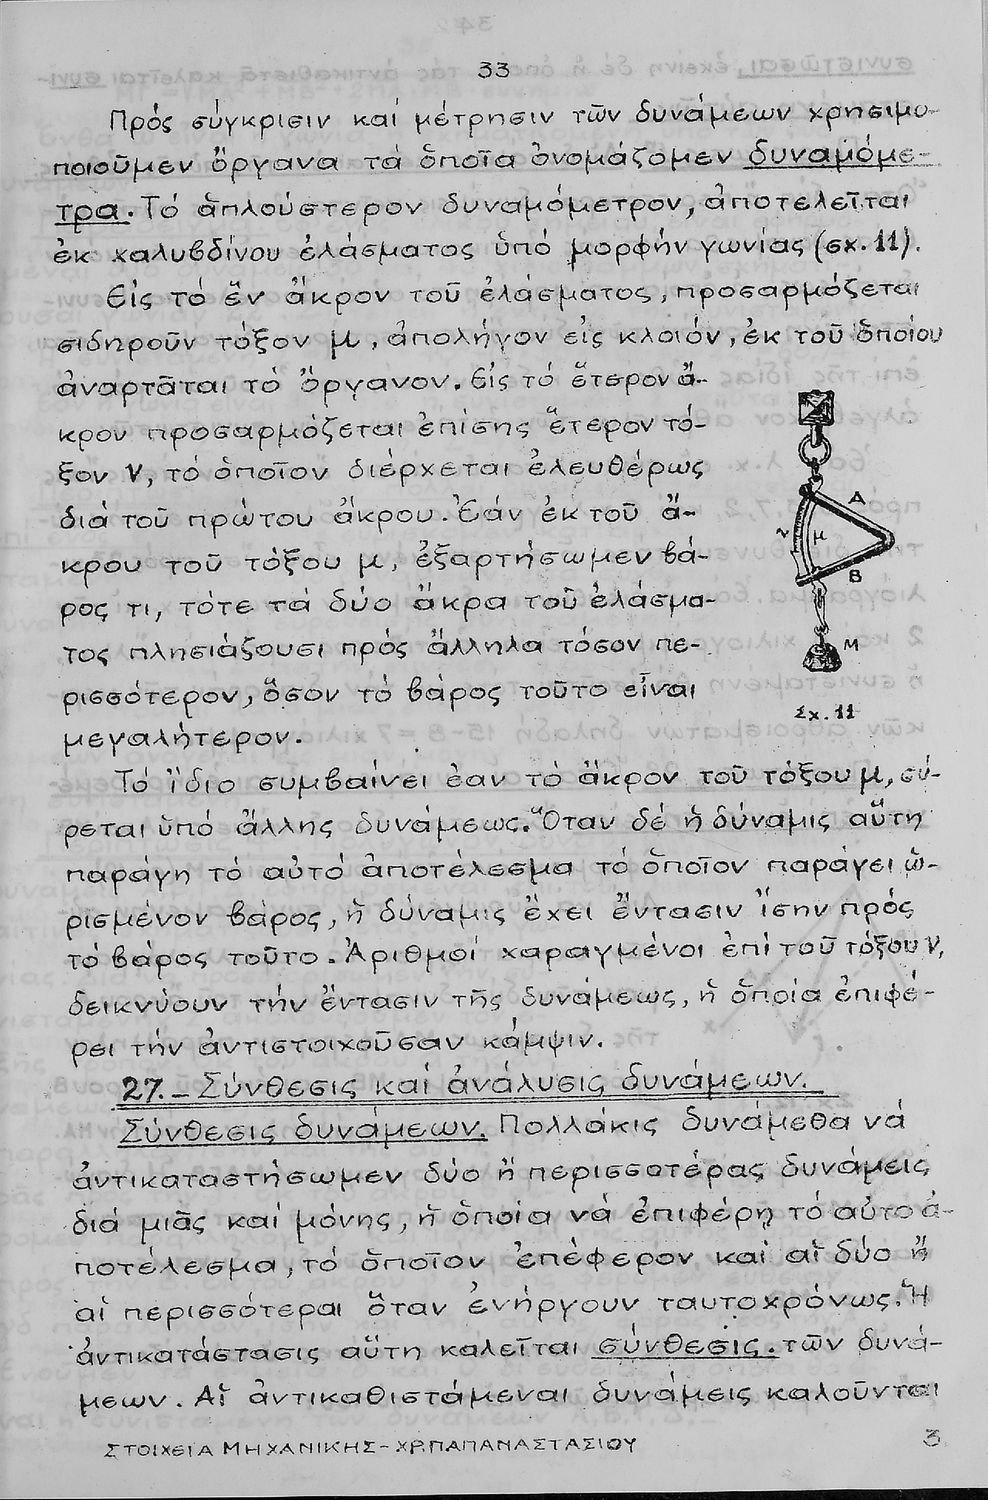 33
Πρός σύγκρισιν καί μέτρησιν τῶν δυνάμεων χρησιμο-
ποιοῦμεν ὄργανα τά ὁποῖα ὀνομάζομεν δυναμόμε-
τρα. Τό ἁπλούστερον δυναμόμετρον, ἀποτελεῖται
ἐκ χαλυβδίνου ἐλάσματος ὑπό μορφήν γωνίας (σχ. 11).
Εἰς τό ἕν ἄκρον τοῦ ἐλάσματος, προσαρμόζεται
σιδηροῦν τόξον μ, ἀπολήγον εἰς κλοιόν, ἐκ τοῦ ὁποίου
ἀναρτᾶται τό ὄργανον. Εἰς τό ἕτερον ἄ-
κρον προσαρμόζεται ἐπίσης ἕτερον τό-
ξον ν, τό ὁποῖον διέρχεται ἐλευθέρως
διά τοῦ πρώτου ἄκρου. Ἐάν ἐκ τοῦ ἄ-
κρου τοῦ τόξου μ, ἐξαρτήσωμεν βά-
ρος τι, τότε τά δύο ἄκρα τοῦ ἐλάσμα-
τος πλησιάζουσι πρός ἄλληλα τόσον πε-
ρισσότερον, ὅσον τό βάρος τοῦτο εἶναι
μεγαλήτερον.
Α
ν
μ
Β
Μ
Σχ. 11
Τό ἴδιο συμβαίνει ἐαν τό ἄκρον τοῦ τόξου μ, σύ-
ρεται ὑπό ἄλλης δυνάμεως. Ὅταν δέ ἡ δύναμις αὕτη
παράγη τό αὐτό ἀποτέλεσμα τό ὁποῖον παράγει ὡ-
ρισμένον βάρος, ἡ δύναμις ἔχει ἔντασιν ἴσην πρός
τό βάρος τοῦτο. Ἀριθμοί χαραγμένοι ἐπί τοῦ τόξου ν,
δεικνύουν τήν ἔντασιν τῆς δυνάμεως, ἡ ὁποία ἐπιφέ-
ρει τήν ἀντιστοιχοῦσαν κάμψιν.
27. – Σύνθεσις καί ἀνάλυσις δυνάμεων.
Σύνθεσις δυνάμεων. Πολλάκις δυνάμεθα νά
ἀντικαταστήσωμεν δύο ἤ περισσοτέρας δυνάμεις
διά μιᾶς καί μόνης, ἡ ὁποία νά ἐπιφέρῃ τό αὐτο ἀ-
ποτέλεσμα, τό ὁποῖον ἐπέφερον καί αἱ δύο ἤ
αἱ περισσότεραι ὅταν ἐνήργουν ταυτοχρόνως. Ἡ
ἀντικατάστασις αὕτη καλεῖται σύνθεσις. τῶν δυνά-
μεων. Αἱ ἀντικαθιστάμεναι δυνάμεις καλοῦνται
ΣΤΟΙΧΕΙΑ ΜΗΧΑΝΙΚΗΣ – ΧΡ. ΠΑΠΑΝΑΣΤΑΣΙΟΥ
3